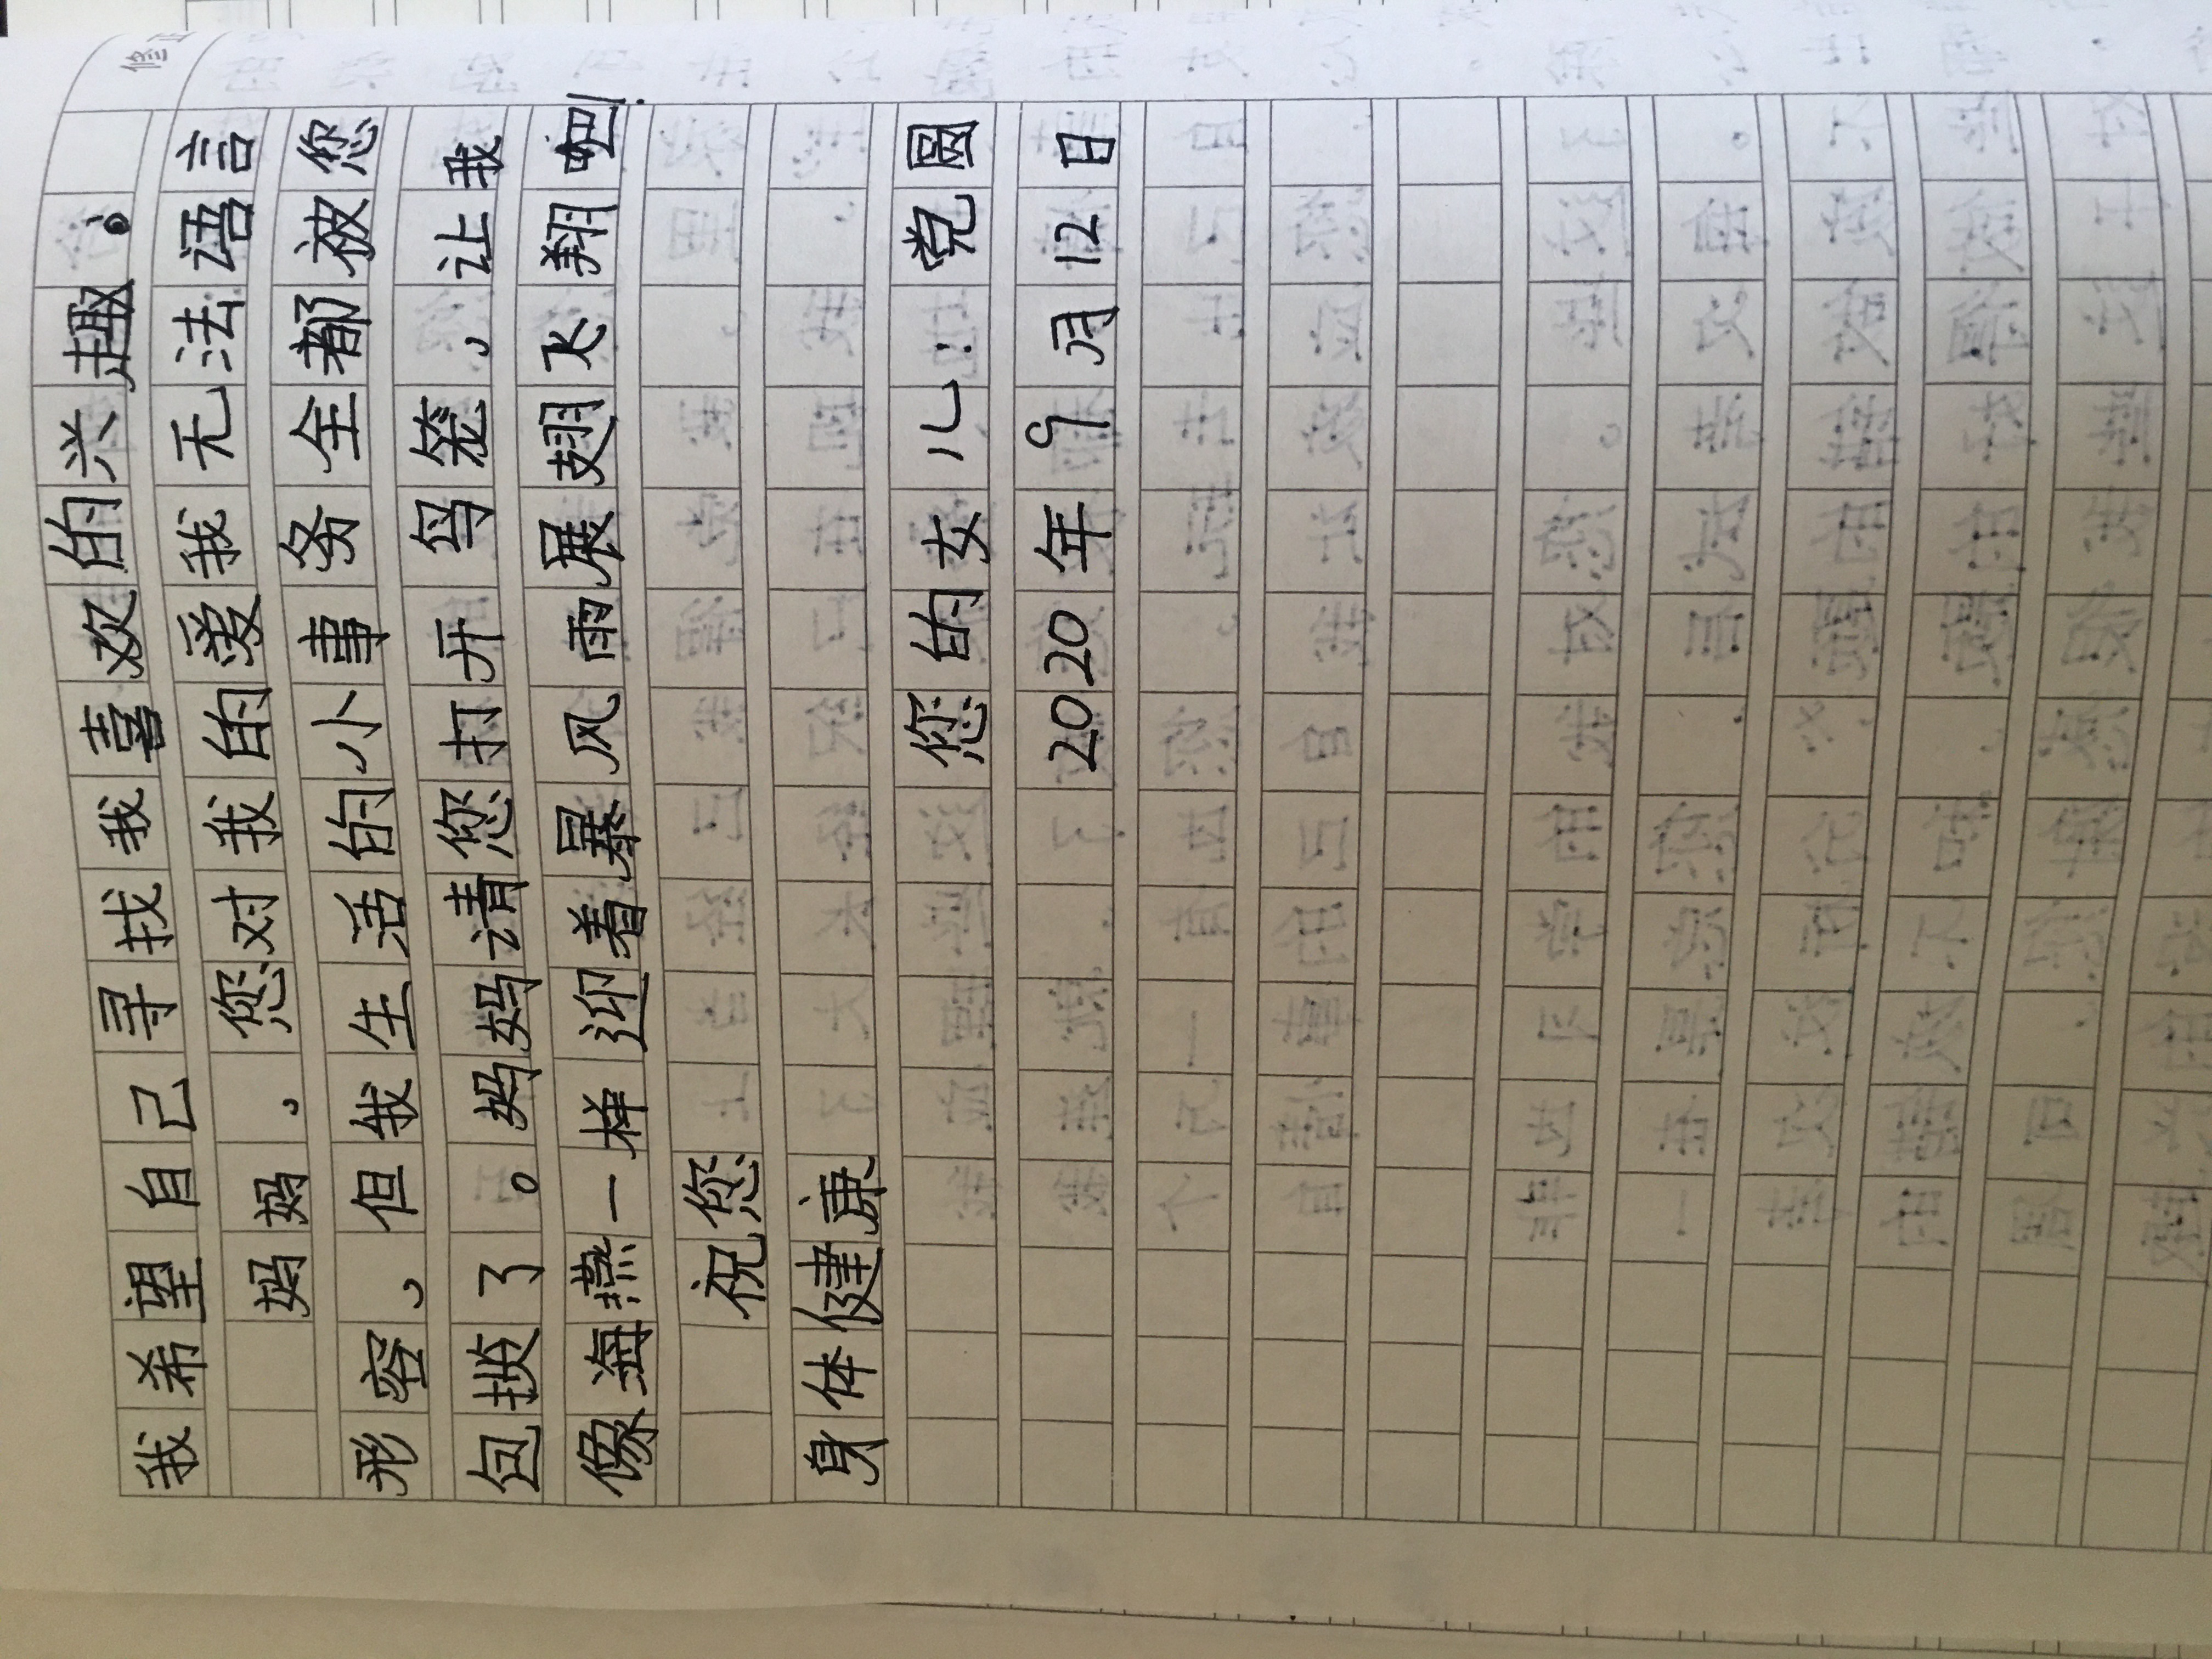 我希望自己寻找我喜欢的兴趣。
妈妈，您对我的爱我无法语言
形容，但我生活的小事务全都被您
包揽了。妈妈请您打开鸟笼，让我
像海燕一样迎着暴风雨展翅飞翔吧！
祝您
身体健康
您的女儿：党圆
2020年9月12日